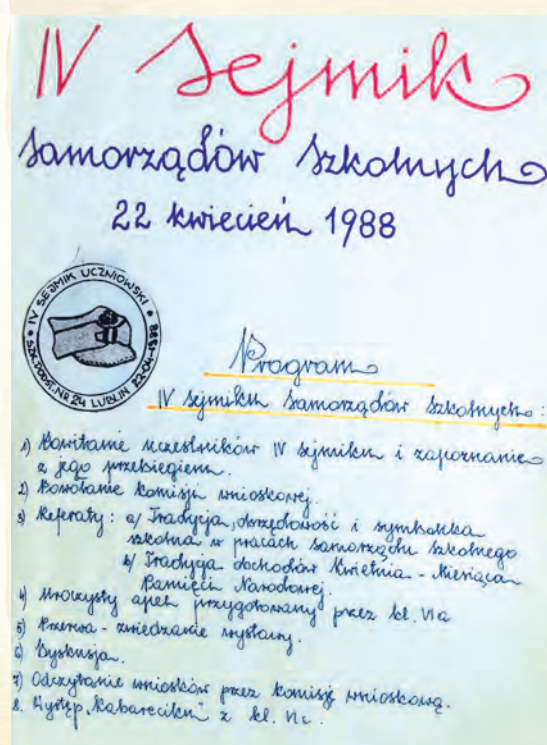 IV Sejmik
Samorządów Szkolnych
22 kwiecień 1988
• IV SEJMIK UCZNIOWSKI •
SZK. PODST. NR 24 LUBLIN 22-04-1988
Program
IV sejmiku samorządów szkolnych:
1) Powitanie uczestników IV sejmiku i zapoznanie
z jego przebiegiem.
2) Powołanie komisji wnioskowej.
3) Referaty: a/ Tradycja, obrzędowość i symbolika
szkolna w pracach samorządu szkolnego
b/ Tradycja obchodów Kwietnia - Miesiąca
Pamięci Narodowej.
4) Uroczysty apel przygotowany przez kl. VIa
5) Przerwa - zwiedzanie wystawy.
6) Dyskusja.
7) Odczytanie wniosków przez komisję wnioskową.
8. Występ "Kabareciku" z kl.